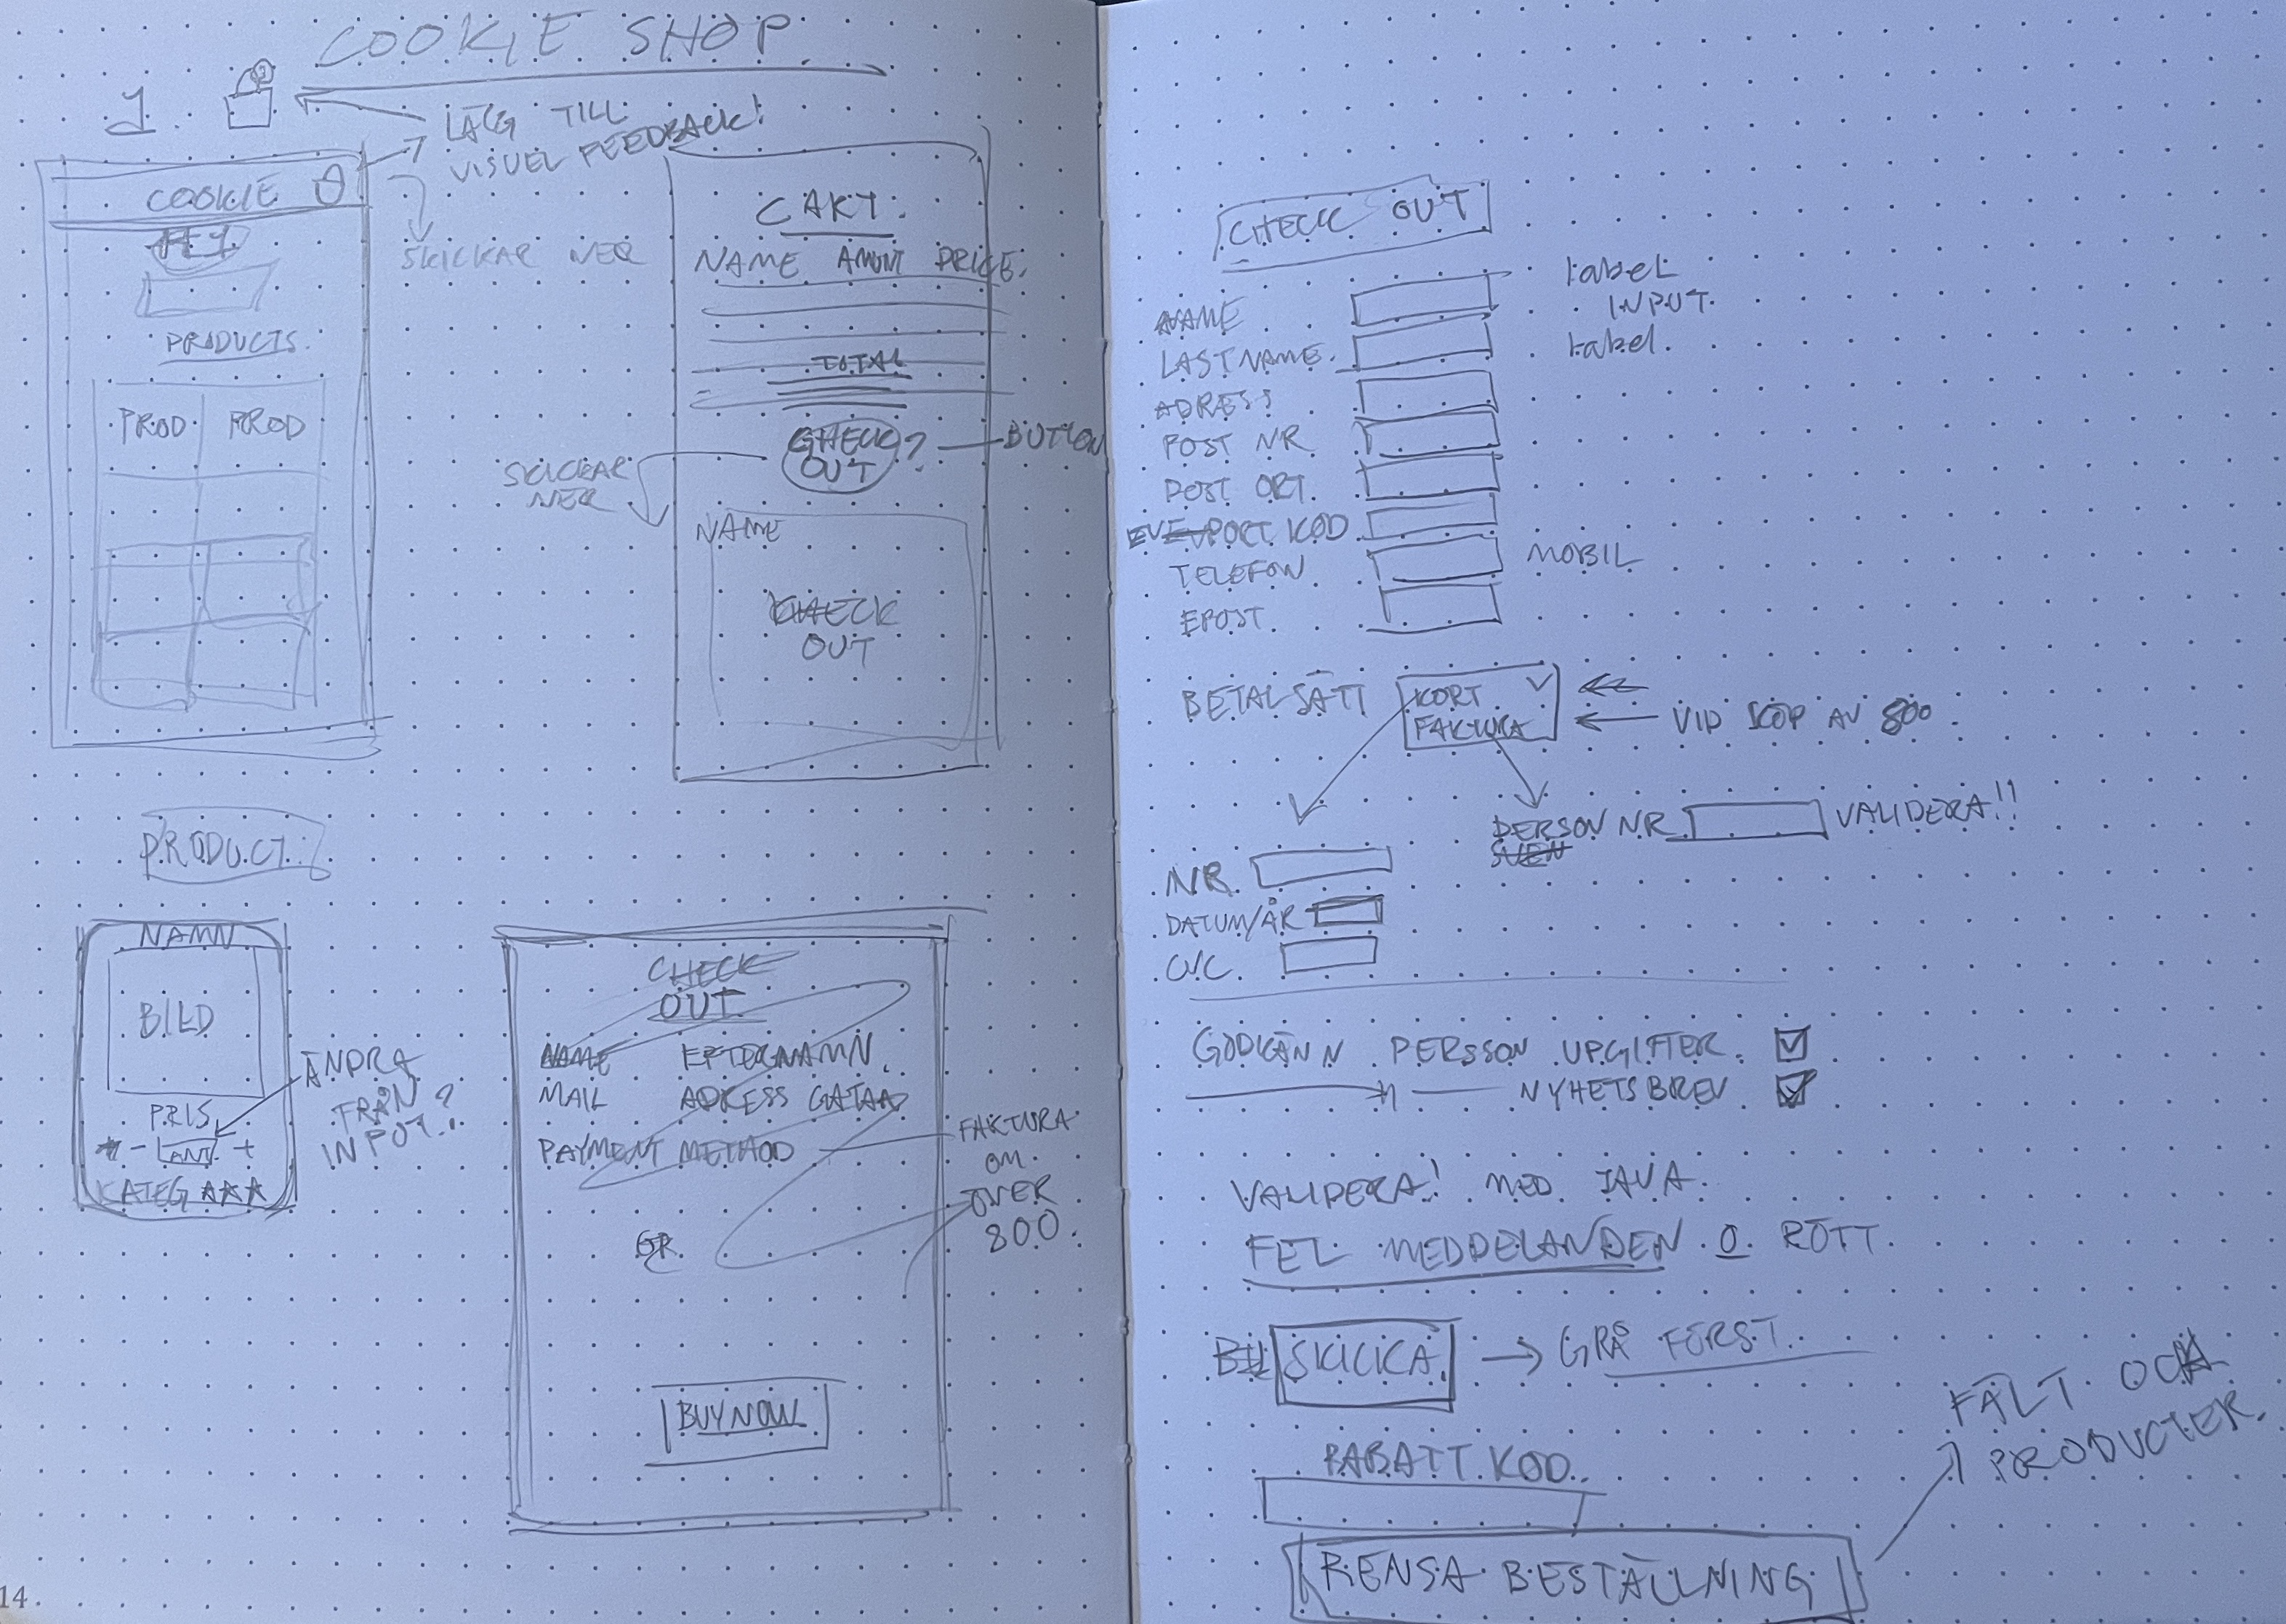 COOKIE SHOP
1.
LÄGG TILL
VISUEL FEEDBACK!
COOKIE
SKICKAR NER
PRODUCTS.
PROD PROD
CART.
NAME AMUNT PRICE.
TOTAL
CHECK OUT ? BUTTON
SKICKAR
NER
NAME
CHECK
OUT
PRODUCT.
NAMN
BILD
PRIS
- ANT. +
KATEG
ÄNDRA
FRÅN
INPUT?
CHECK
OUT.
NAME EFTERNAMN.
MAIL ADRESS GATAA
PAYMENT METHOD
FAKTURA
OM.
ÖVER
800.
GR.
BUY NOW
14
CHECK OUT
NAME
LASTNAME.
ADRESS
POST NR
POST ORT.
EV PORT KOD
TELEFON.
EPOST.
label
INPUT.
label.
MOBIL
BETALSÄTT
KORT
FAKTURA
VID KÖP AV 800.
PERSON NR. VALIDERA!!
NR.
DATUM/ÅR
CVC.
GODKÄNN PERSSON UPGIFTER.
NYHETSBREV
VALIDERA! MED JAVA.
FEL MEDDELANDEN O RÖTT.
SKICKA → GRÅ FÖRST.
RABATT KOD.
RENSA BESTÄLLNING
FÄLT OCH
PRODUCTER.